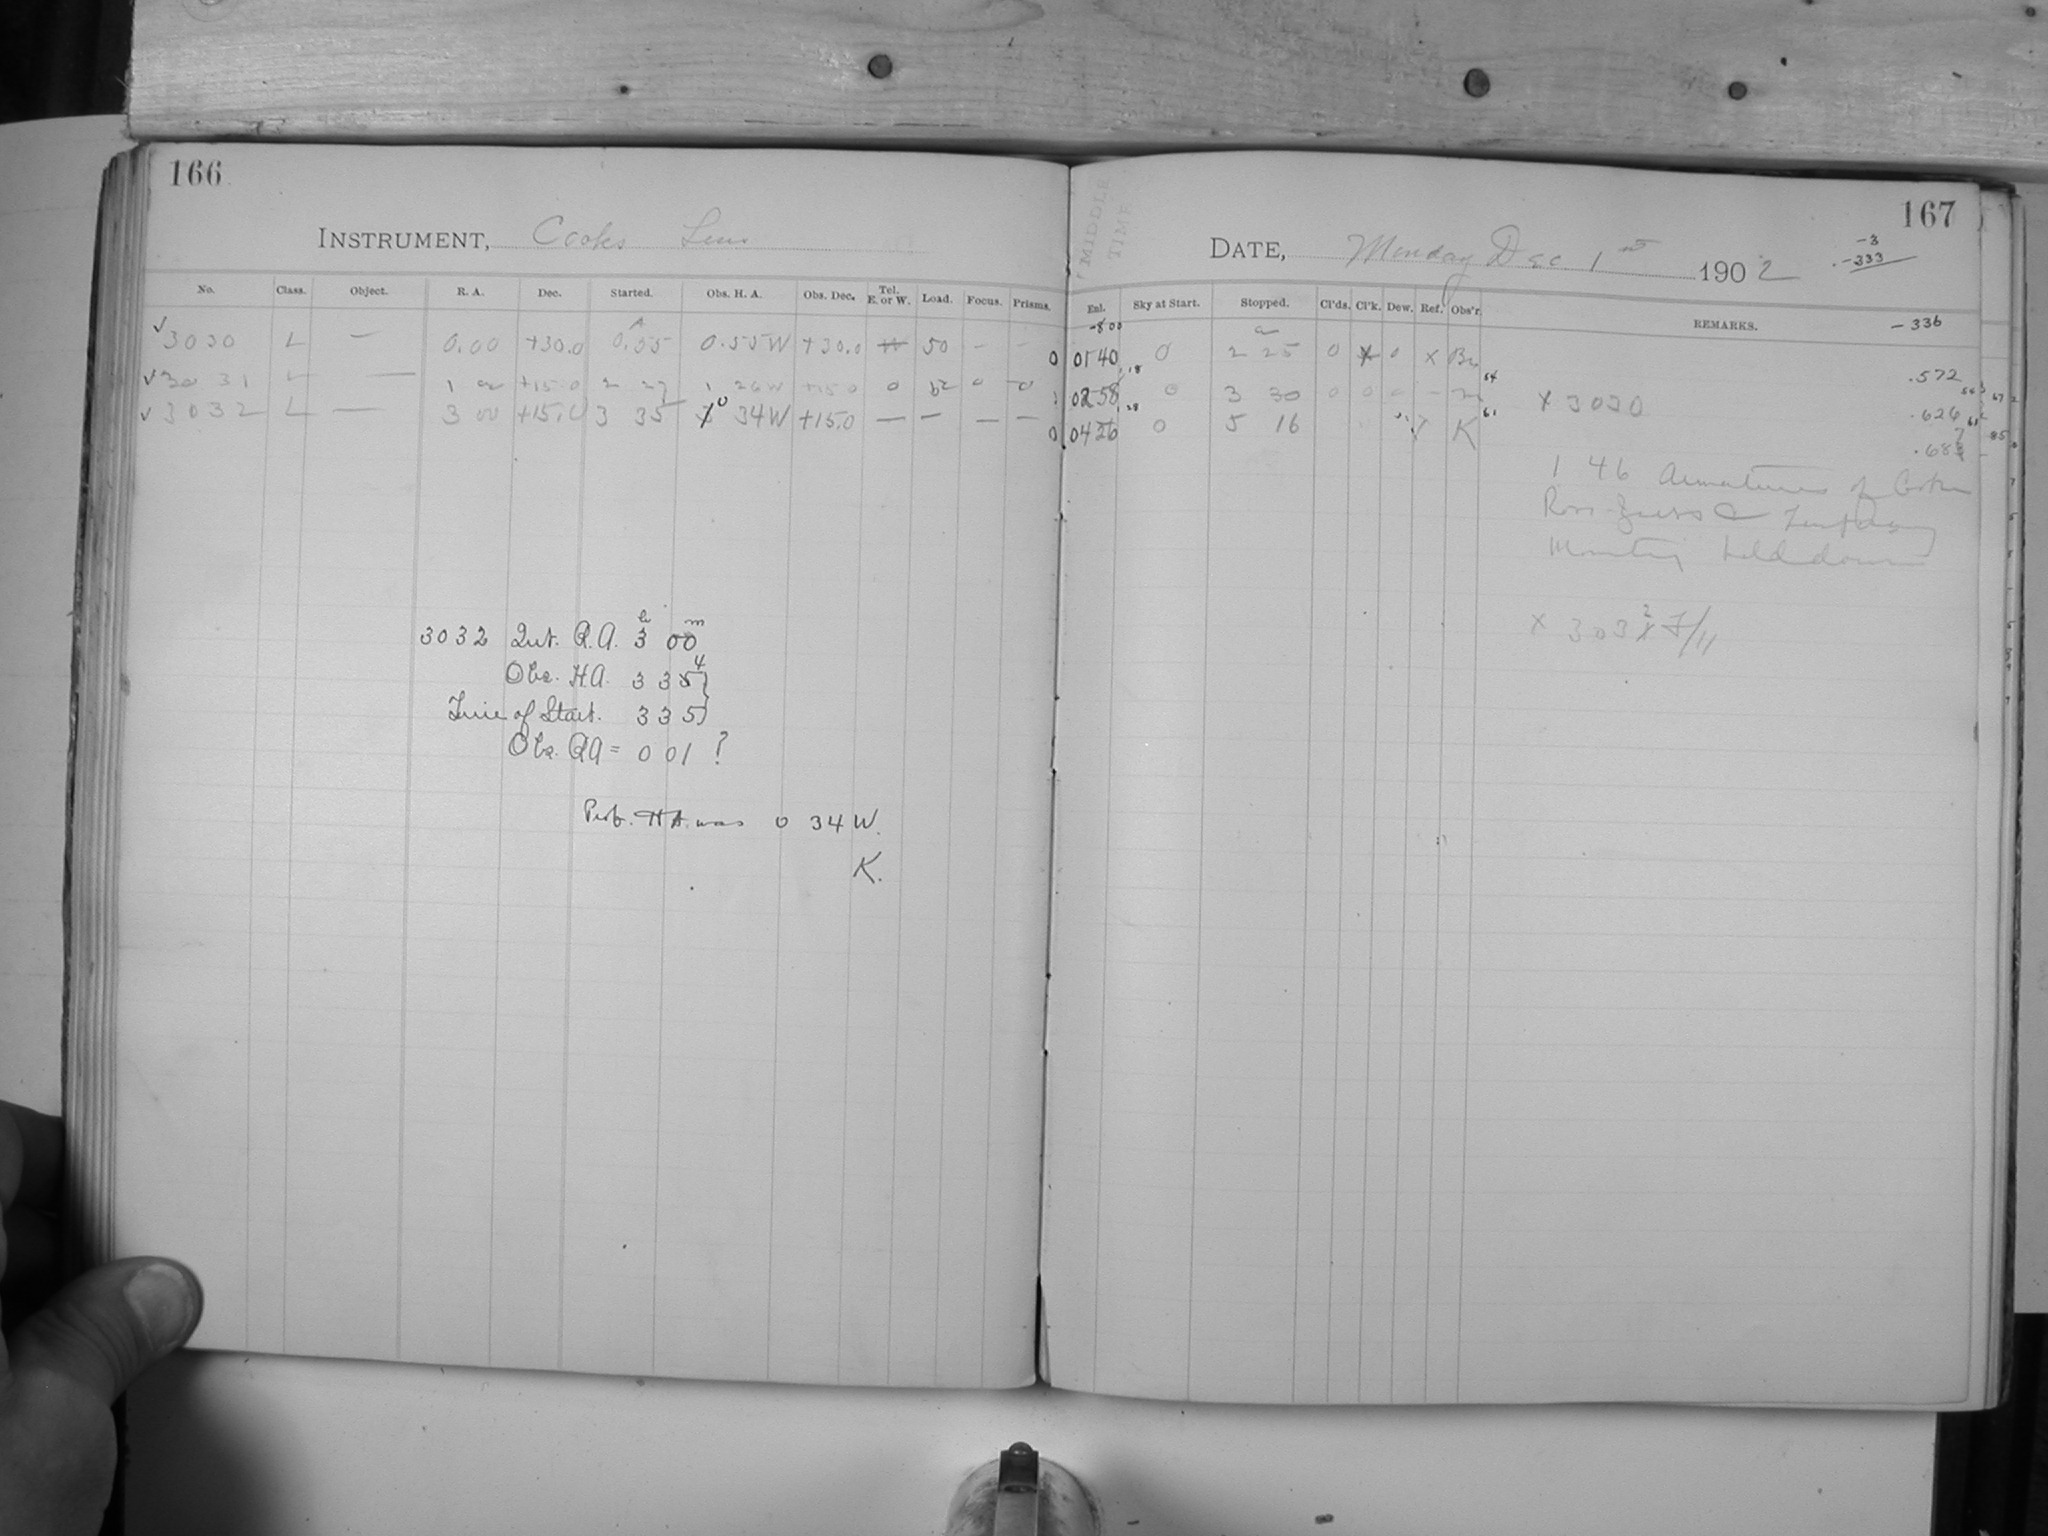 166
INSTRUMENT, Cooke Lens
No. Class. Object. R. A. Dec. Started. Obs. H. A. Obs. Dec. Tel. E. or W. Load. Focus. Prisms.
✓ 3030 L — 0.00 +30.0 0.55 0.55W +30.0 50 — —
✓ 3031 L — 1 +15.0 2 27 1 26W +15.0 0 62 0 0
✓ 3032 L — 3 00 +15.0 3 35 0 34W +15.0 — — — —
3032 Int. R.A. 3h 00m
Obs. H.A. 3 34
Time of Start. 3 35
Obs. RA = 0 01 ?
Prob. HA. was 0 34 W.
K.
MIDDLE TIME
167
DATE, Monday Dec 1st 1902
-3
-333
Enl. Sky at Start. Stopped. Cl'ds. Cl'k. Dew. Ref. Obs'r. REMARKS.
-336
-800
0 01 40 0 2 25 0 x 0 x
.572
02 58 0 3 30 0 0 0 —
x 3030
.626
0 04 26 0 5 16 K
1 46 Armatures of Cooke
Ross-Zeiss & Temporary
Mounting held down
x 3032 F/11